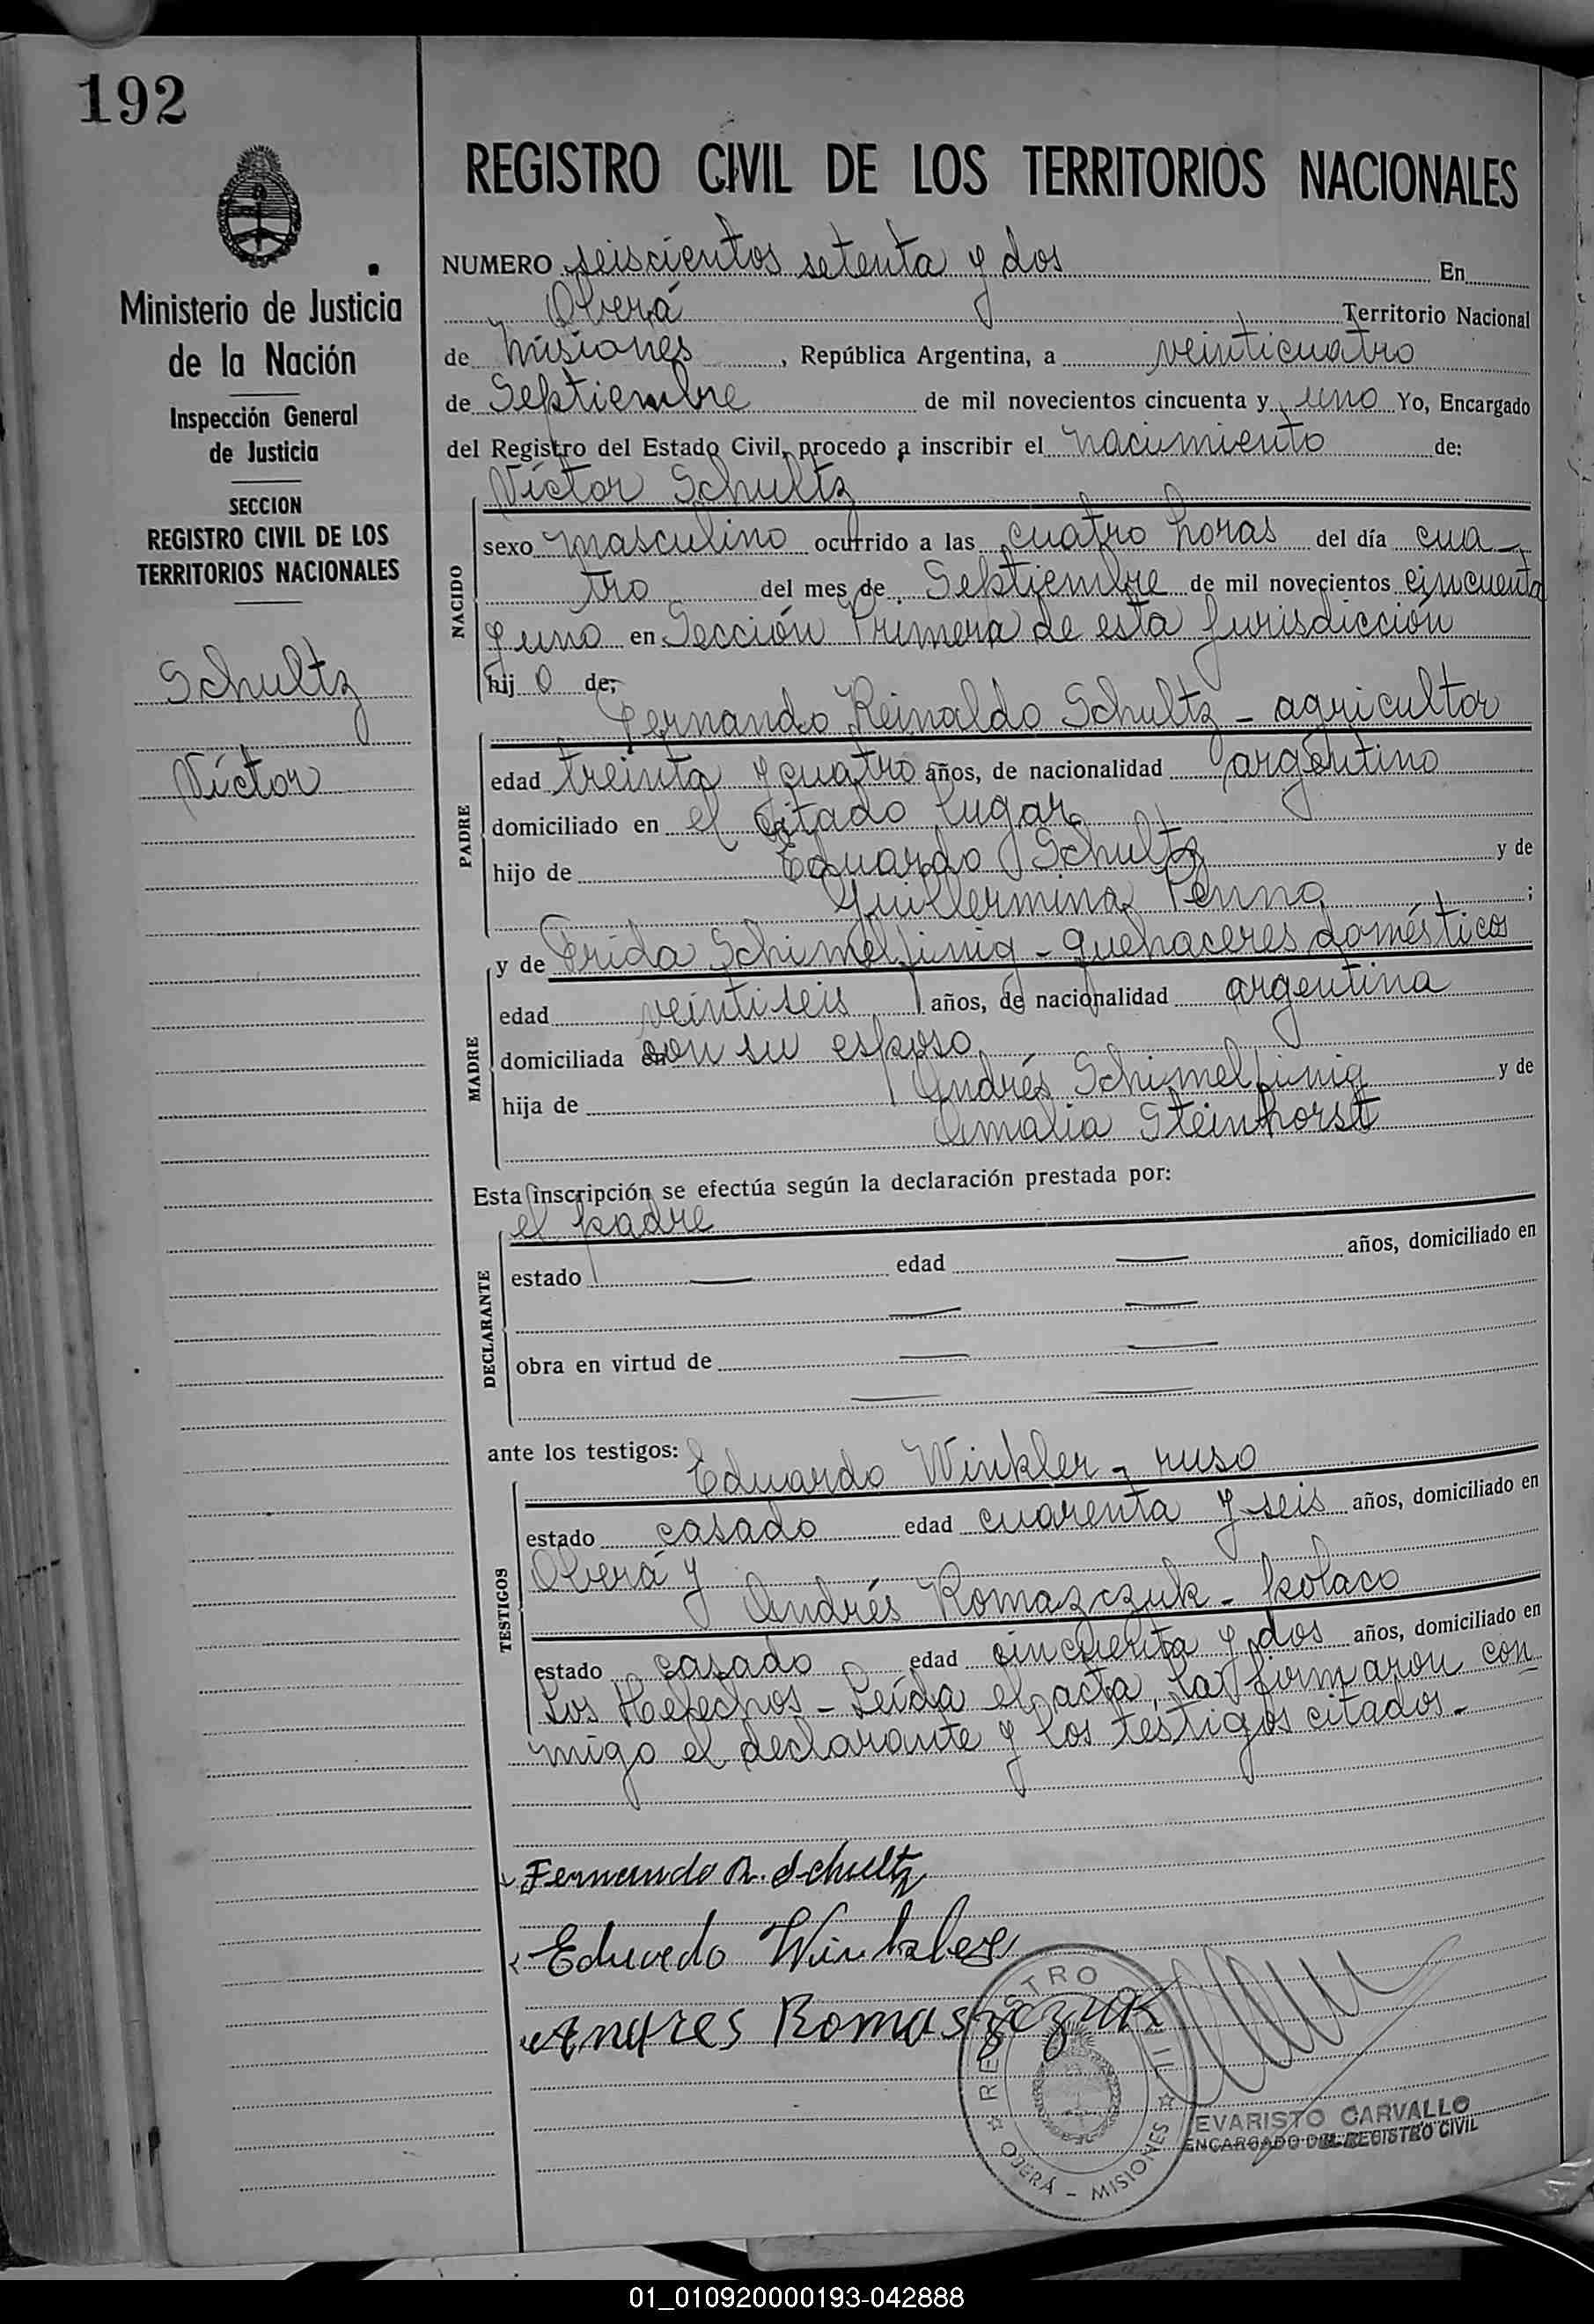 192
Ministerio de Justicia
de la Nación
Inspección General
de Justicia
SECCION
REGISTRO CIVIL DE LOS
TERRITORIOS NACIONALES
Schultz
Víctor
REGISTRO CIVIL DE LOS TERRITORIOS NACIONALES
NUMERO seiscientos setenta y dos En
Oberá Territorio Nacional
de Misiones, República Argentina, a veinticuatro
de Septiembre de mil novecientos cincuenta y uno Yo, Encargado
del Registro del Estado Civil, procedo a inscribir el nacimiento de:
Víctor Schultz
NACIDO
sexo masculino ocurrido a las cuatro horas del día cua-
tro del mes de Septiembre de mil novecientos cincuenta
y uno en Sección Primera de esta jurisdicción
hijo de:
Fernando Reinaldo Schultz - agricultor
PADRE
edad treinta y cuatro años, de nacionalidad argentino
domiciliado en el citado lugar
hijo de Eduardo Schultz y de
Guillermina Penno ;
y de Frida Schimelfinig - quehaceres domésticos
MADRE
edad veintiseis años, de nacionalidad argentina
domiciliada con su esposo
hija de Andrés Schimelfinig y de
Amalia Steinhorst
Esta inscripción se efectúa según la declaración prestada por:
el padre
DECLARANTE
estado — edad — años, domiciliado en
— —
obra en virtud de — —
— —
ante los testigos:
Eduardo Winkler - ruso
TESTIGOS
estado casado edad cuarenta y seis años, domiciliado en
Oberá y
Andrés Romazczuk - polaco
estado casado edad cincuenta y dos años, domiciliado en
Los Helechos - Leída el acta, la firmaron con
migo el declarante y los testigos citados.-
Fernando R. Schultz
Eduardo Winkler
Andres Romaszczuk
REGISTRO CIVIL
OBERÁ - MISIONES
EVARISTO CARVALLO
ENCARGADO DEL REGISTRO CIVIL
01_010920000193-042888